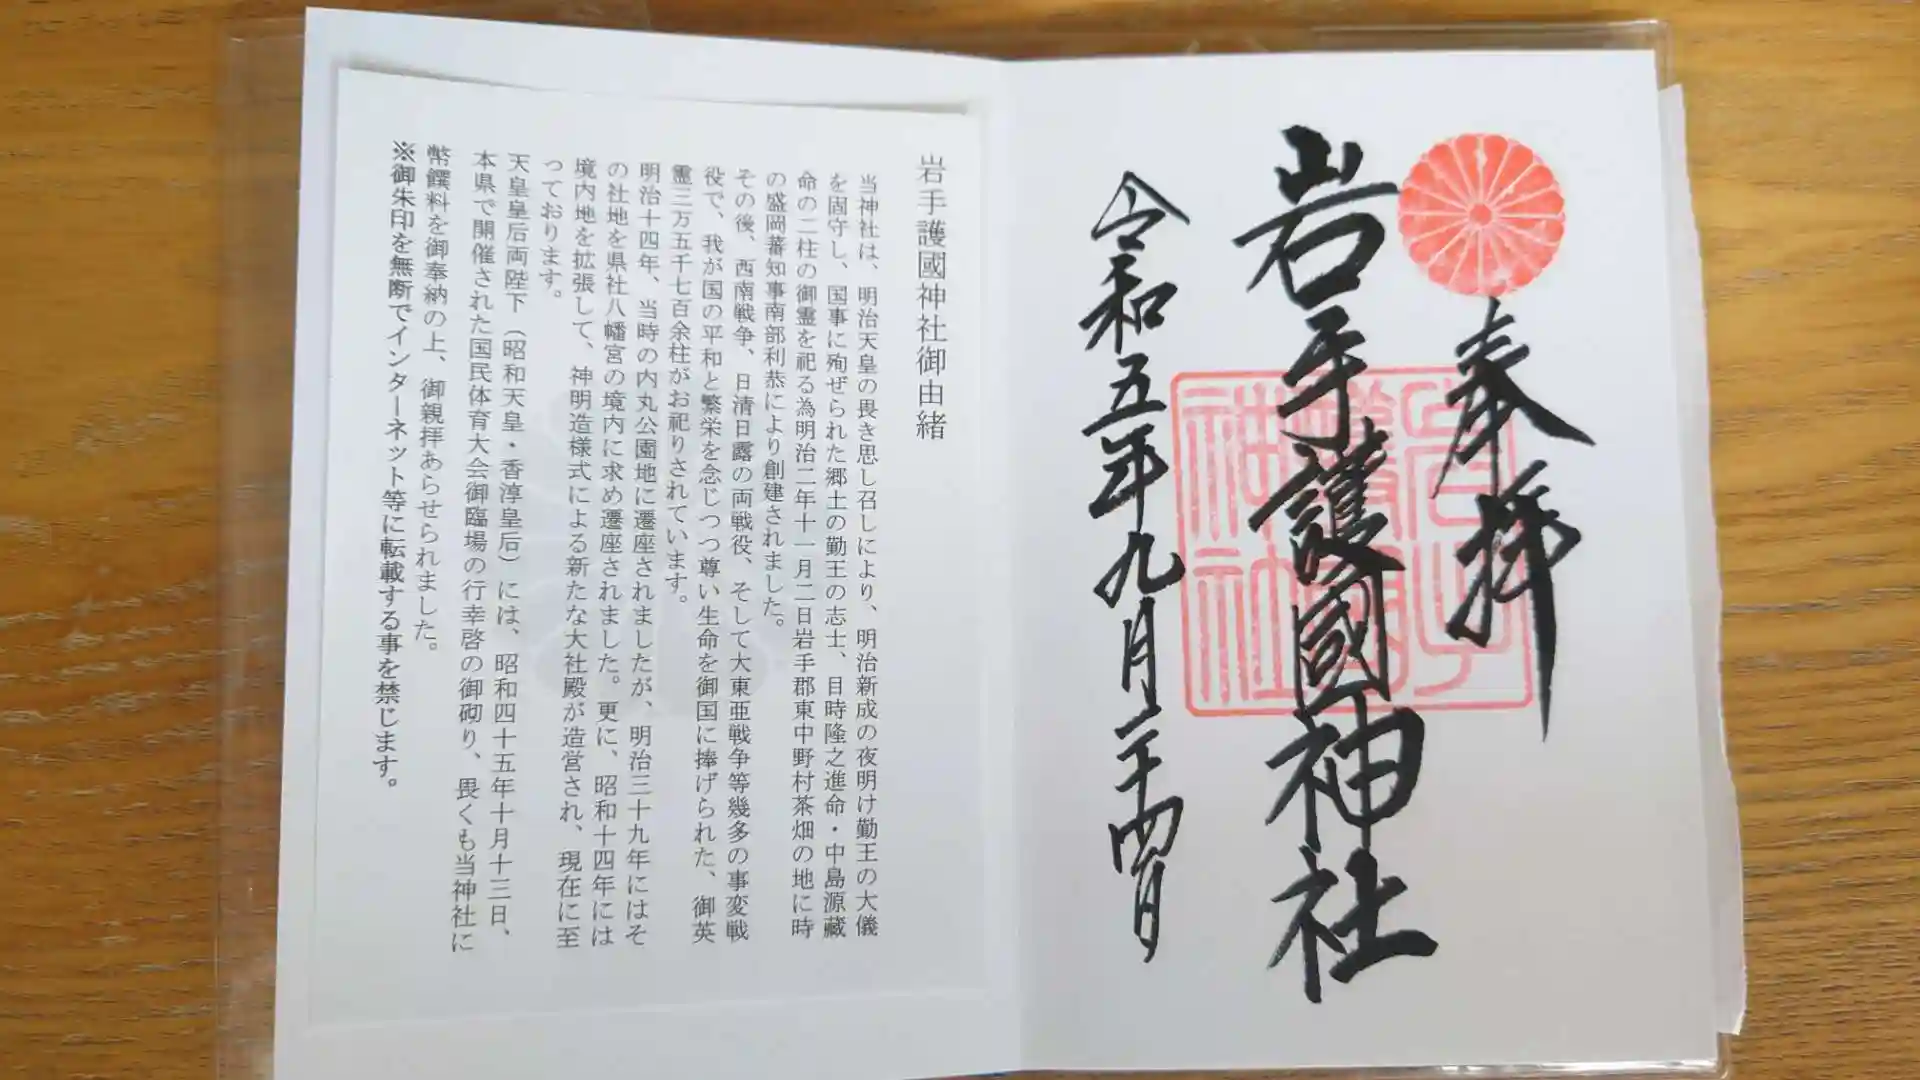 奉拝
岩手護國神社
令和五年九月二十四日
岩手護國神社
岩手護國神社御由緒
当神社は、明治天皇の畏き思し召しにより、明治新成の夜明け勤王の大儀
を固守し、国事に殉ぜられた郷土の勤王の志士、目時隆之進命・中島源蔵
命の二柱の御霊を祀る為明治二年十一月二日岩手郡東中野村茶畑の地に時
の盛岡蕃知事南部利恭により創建されました。
その後、西南戦争、日清日露の両戦役、そして大東亜戦争等幾多の事変戦
役で、我が国の平和と繁栄を念じつつ尊い生命を御国に捧げられた、御英
霊三万五千七百余柱がお祀りされています。
明治十四年、当時の内丸公園地に遷座されましたが、明治三十九年にはそ
の社地を県社八幡宮の境内に求め遷座されました。更に、昭和十四年には
境内地を拡張して、神明造様式による新たな大社殿が造営され、現在に至
っております。
天皇皇后両陛下（昭和天皇・香淳皇后）には、昭和四十五年十月十三日、
本県で開催された国民体育大会御臨場の行幸啓の御砌り、畏くも当神社に
幣饌料を御奉納の上、御親拝あらせられました。
※御朱印を無断でインターネット等に転載する事を禁じます。